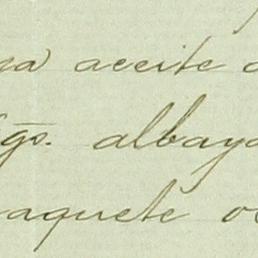 aceite
gs. albaya
aquete